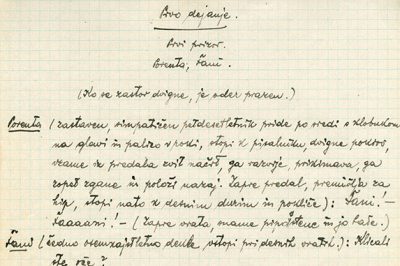 Prvo dejanje.
Prvi prizor.
Porenta, Fani.
(Ko se zastor dvigne, je oder prazen.)
Porenta (zastaven, simpatičen petdesetletnik pride po sredi s klobukom
na glavi in palico v roki, stopi k pisalniku, dvigne pokrov,
vzame iz predala zvit načrt, ga razvije, prikimava, ga
zopet zgane in položi nazaj. Zapre predal, premišlja za
hip, stopi nato k desnim durim in pokliče): Fani! –
Faaaani! – (Zapre vrata, sname in jo kaže.)
Fani (čedno osemnajstletno dekle, vstopi pri desnih vratih.): Klicali
ste, oče?